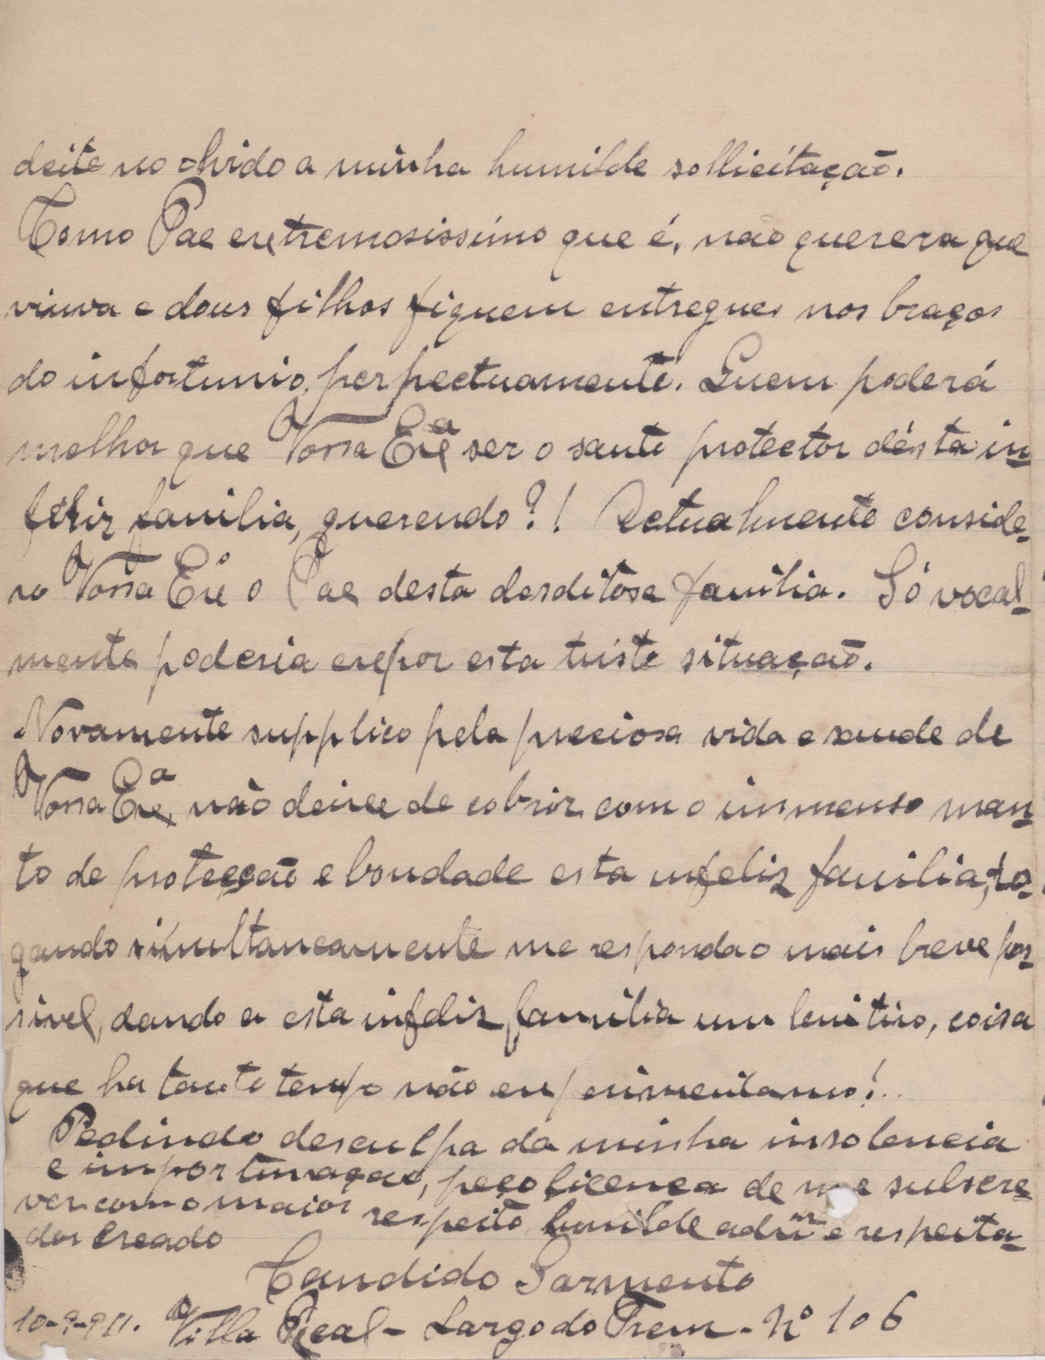 deite no olvido a minha humilde sollicitação.
Como Pae extremosissimo que é, não querera que
viuva e dous filhos fiquem entregues nos braços
do infortunio, perpectuamente. Quem poderá
melhor que Vossa Exª ser o santo protector désta in-
feliz familia, querendo?! Actualmente conside-
ro Vossa Exª o Pae desta desditosa familia. Só vocal-
mente poderia expor esta triste situação.
Novamente supplico pela preciosa vida e saude de
Vossa Exª, não deixe de cobrir com o immenso man-
to de protecção e bondade esta infeliz familia, ro-
gando simultaneamente me responda o mais breve pos-
sivel, dando a esta infeliz familia um lenitivo, coisa
que ha tanto tempo não experimentamos!..
Pedindo desculpa da minha insolencia
e importunação, peço licença de me subscre-
ver com o maior respeito humilde admºr e respeita-
dor creado
Candido Sarmento
10-9-911. Villa Real - Largo do Trem - Nº 106